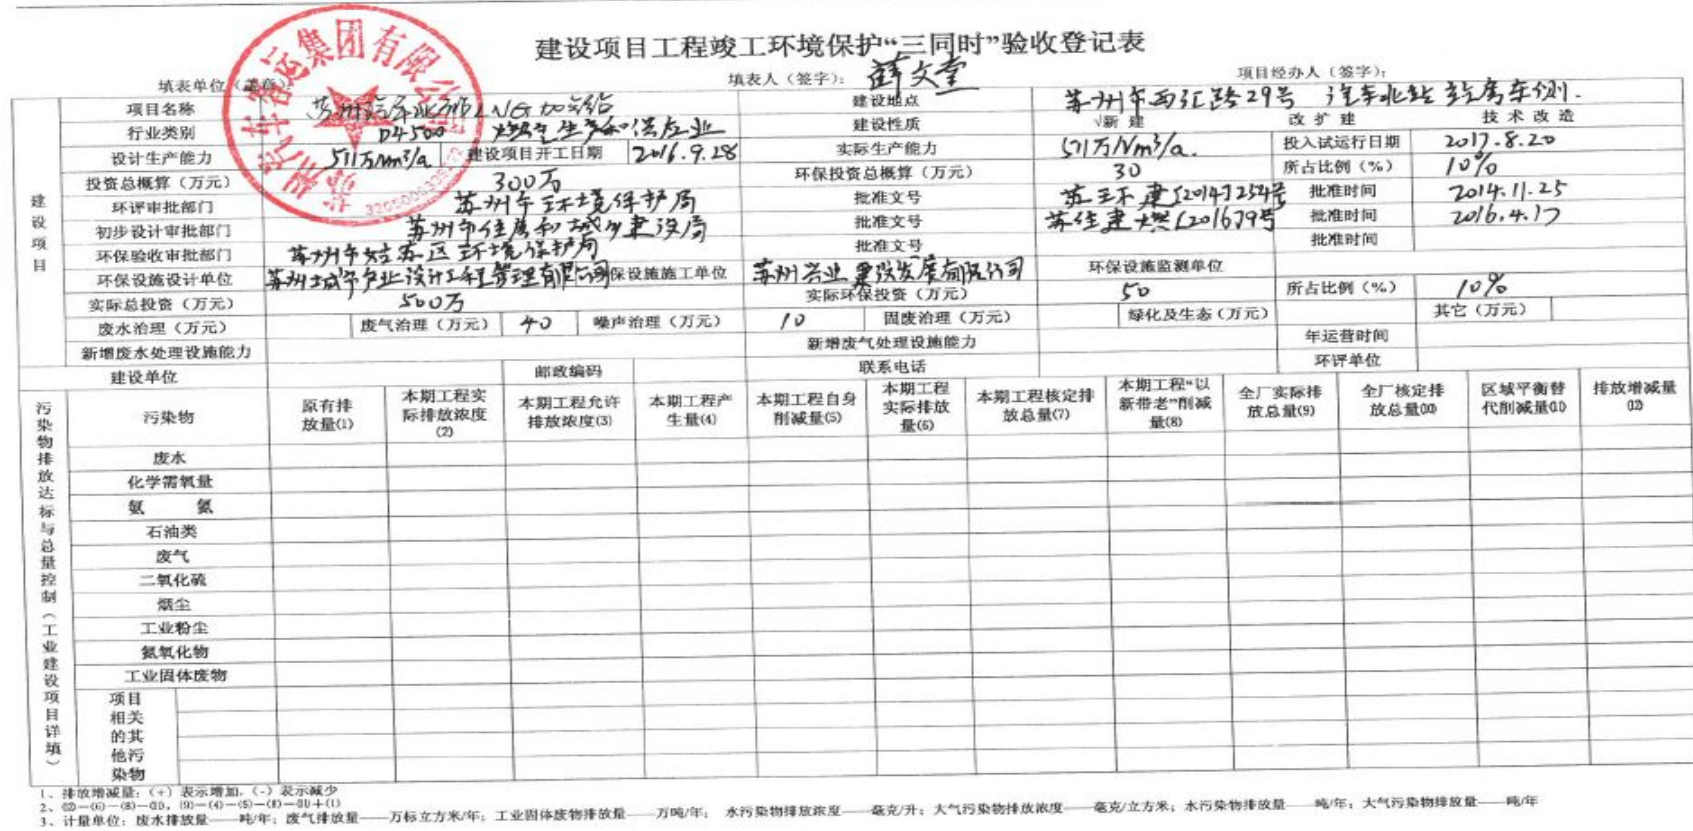 建设项目工程竣工环境保护“三同时”验收登记表
填表单位（盖章）： 填表人（签字）： 薛文堂 项目经办人（签字）：
苏州汽车客运集团有限公司
建设项目
项目名称 苏州汽车北站LNG加气站 建设地点 苏州市西汇路29号 汽车北站站房东侧.
行业类别 D4500 燃气生产和供应业 建设性质 √新建 改扩建 技术改造
设计生产能力 511万Nm³/a 建设项目开工日期 2016.9.28 实际生产能力 511万Nm³/a. 投入试运行日期 2017.8.20
投资总概算（万元） 300万 环保投资总概算（万元） 30 所占比例（%） 10%
环评审批部门 苏州市环境保护局 批准文号 苏环建[2014]254号 批准时间 2014.11.25
初步设计审批部门 苏州市住房和城乡建设局 批准文号 苏住建燃[2016]79号 批准时间 2016.4.17
环保验收审批部门 苏州市姑苏区环境保护局 批准文号 批准时间
环保设施设计单位 苏州城市产业设计工程管理有限公司 保设施施工单位 苏州兴业建设发展有限公司 环保设施监测单位
实际总投资（万元） 500万 实际环保投资（万元） 50 所占比例（%） 10%
废水治理（万元） 废气治理（万元） 40 噪声治理（万元） 10 固废治理（万元） 绿化及生态（万元） 其它（万元）
新增废水处理设施能力 新增废气处理设施能力 年运营时间
建设单位 邮政编码 联系电话 环评单位
污染物排放达标与总量控制（工业建设项目详填）
污染物 原有排放量(1) 本期工程实际排放浓度(2) 本期工程允许排放浓度(3) 本期工程产生量(4) 本期工程自身削减量(5) 本期工程实际排放量(6) 本期工程核定排放总量(7) 本期工程“以新带老”削减量(8) 全厂实际排放总量(9) 全厂核定排放总量(10) 区域平衡替代削减量(11) 排放增减量(12)
废水
化学需氧量
氨 氮
石油类
废气
二氧化硫
烟尘
工业粉尘
氮氧化物
工业固体废物
项目相关的其他污染物
1、排放增减量：（+）表示增加，（-）表示减少
2、(12)=(6)-(8)-(11)，(9)=(4)-(5)-(8)-(11)+(1)
3、计量单位：废水排放量——吨/年；废气排放量——万标立方米/年；工业固体废物排放量——万吨/年； 水污染物排放浓度——毫克/升；大气污染物排放浓度——毫克/立方米；水污染物排放量——吨/年；大气污染物排放量——吨/年